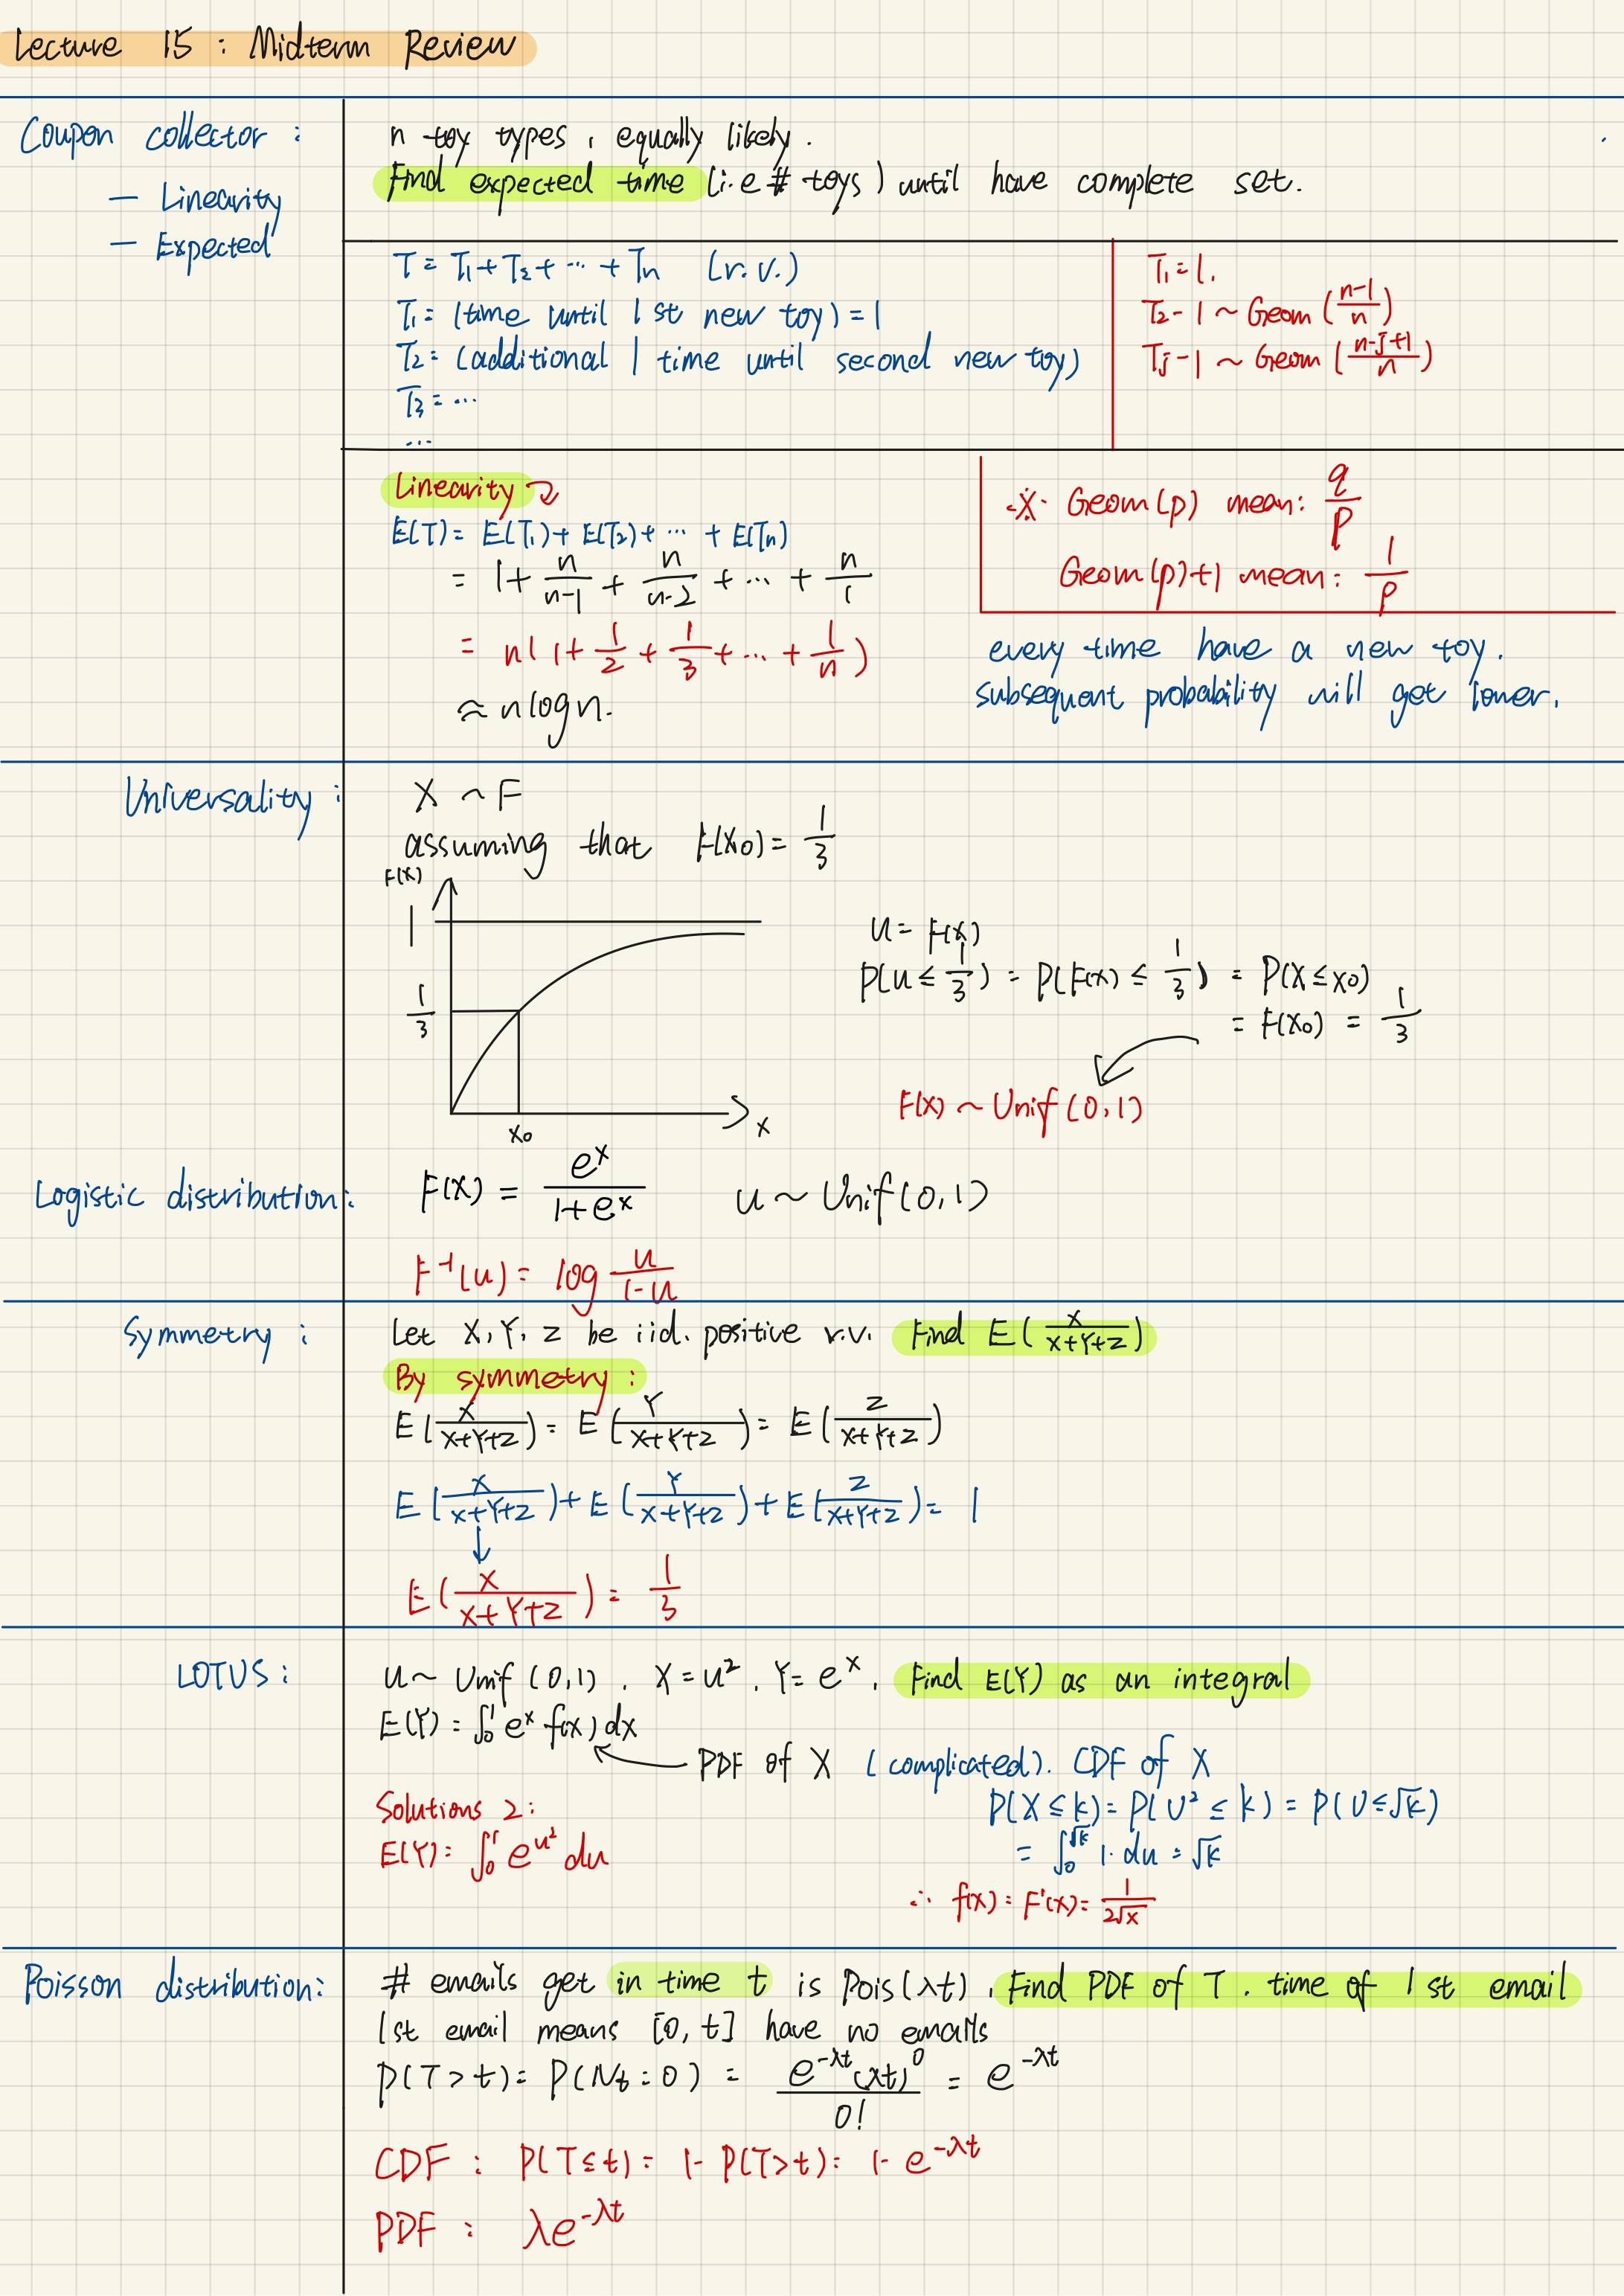 Lecture 15 : Midterm Review
Coupon collector :
— Linearity
— Expected
n toy types , equally likely .
Find expected time (i.e # toys ) until have complete set.
T = T₁ + T₂ + ⋯ + Tn (r.v.)
T₁ = (time until 1 st new toy) = 1
T₂ = (additional | time until second new toy)
T₃ = ⋯
⋯
T₁ = 1.
T₂ - 1 ~ Geom (n-1/n)
Tj - 1 ~ Geom (n-j+1/n)
Linearity
E(T) = E(T₁) + E(T₂) + ⋯ + E(Tn)
= 1 + n/n-1 + n/n-2 + ⋯ + n/1
= n( 1 + 1/2 + 1/3 + ⋯ + 1/n )
≈ n log n.
※ Geom (p) mean: q/p
Geom (p)+1 mean: 1/p
every time have a new toy.
subsequent probability will get lower.
Universality :
X ~ F
assuming that F(x₀) = 1/3
F(x)
1
1/3
x₀
x
u = F(x)
P(u ≤ 1/3) = P(F(x) ≤ 1/3) = P(X ≤ x₀)
= F(x₀) = 1/3
F(x) ~ Unif (0,1)
Logistic distribution:
F(x) = eˣ/1+eˣ u ~ Unif (0,1)
F⁻¹(u) = log u/1-u
Symmetry :
Let X, Y, Z be iid. positive r.v. Find E( X/X+Y+Z )
By symmetry :
E( X/X+Y+Z ) = E( Y/X+Y+Z ) = E( Z/X+Y+Z )
E( X/X+Y+Z ) + E( Y/X+Y+Z ) + E( Z/X+Y+Z ) = 1
↓
E( X/X+Y+Z ) = 1/3
LOTUS :
u ~ Unif (0,1) . X = u² . Y = eˣ . Find E(Y) as an integral
E(Y) = ∫₀¹ eˣ f(x) dx
PDF of X (complicated). CDF of X
P(X ≤ k) = P( U² ≤ k) = P( U ≤ √k)
= ∫₀^√k 1· du = √k
∴ f(x) = F'(x) = 1/2√x
Solutions 2 :
E(Y) = ∫₀¹ e^u² du
Poisson distribution:
# emails get in time t is Pois (λt) , Find PDF of T . time of 1 st email
1st email means [0, t] have no emails
P(T > t) = P(Nt = 0) = e^-λt (λt)⁰/0! = e^-λt
CDF : P(T ≤ t) = 1 - P(T > t) = 1 - e^-λt
PDF : λe^-λt